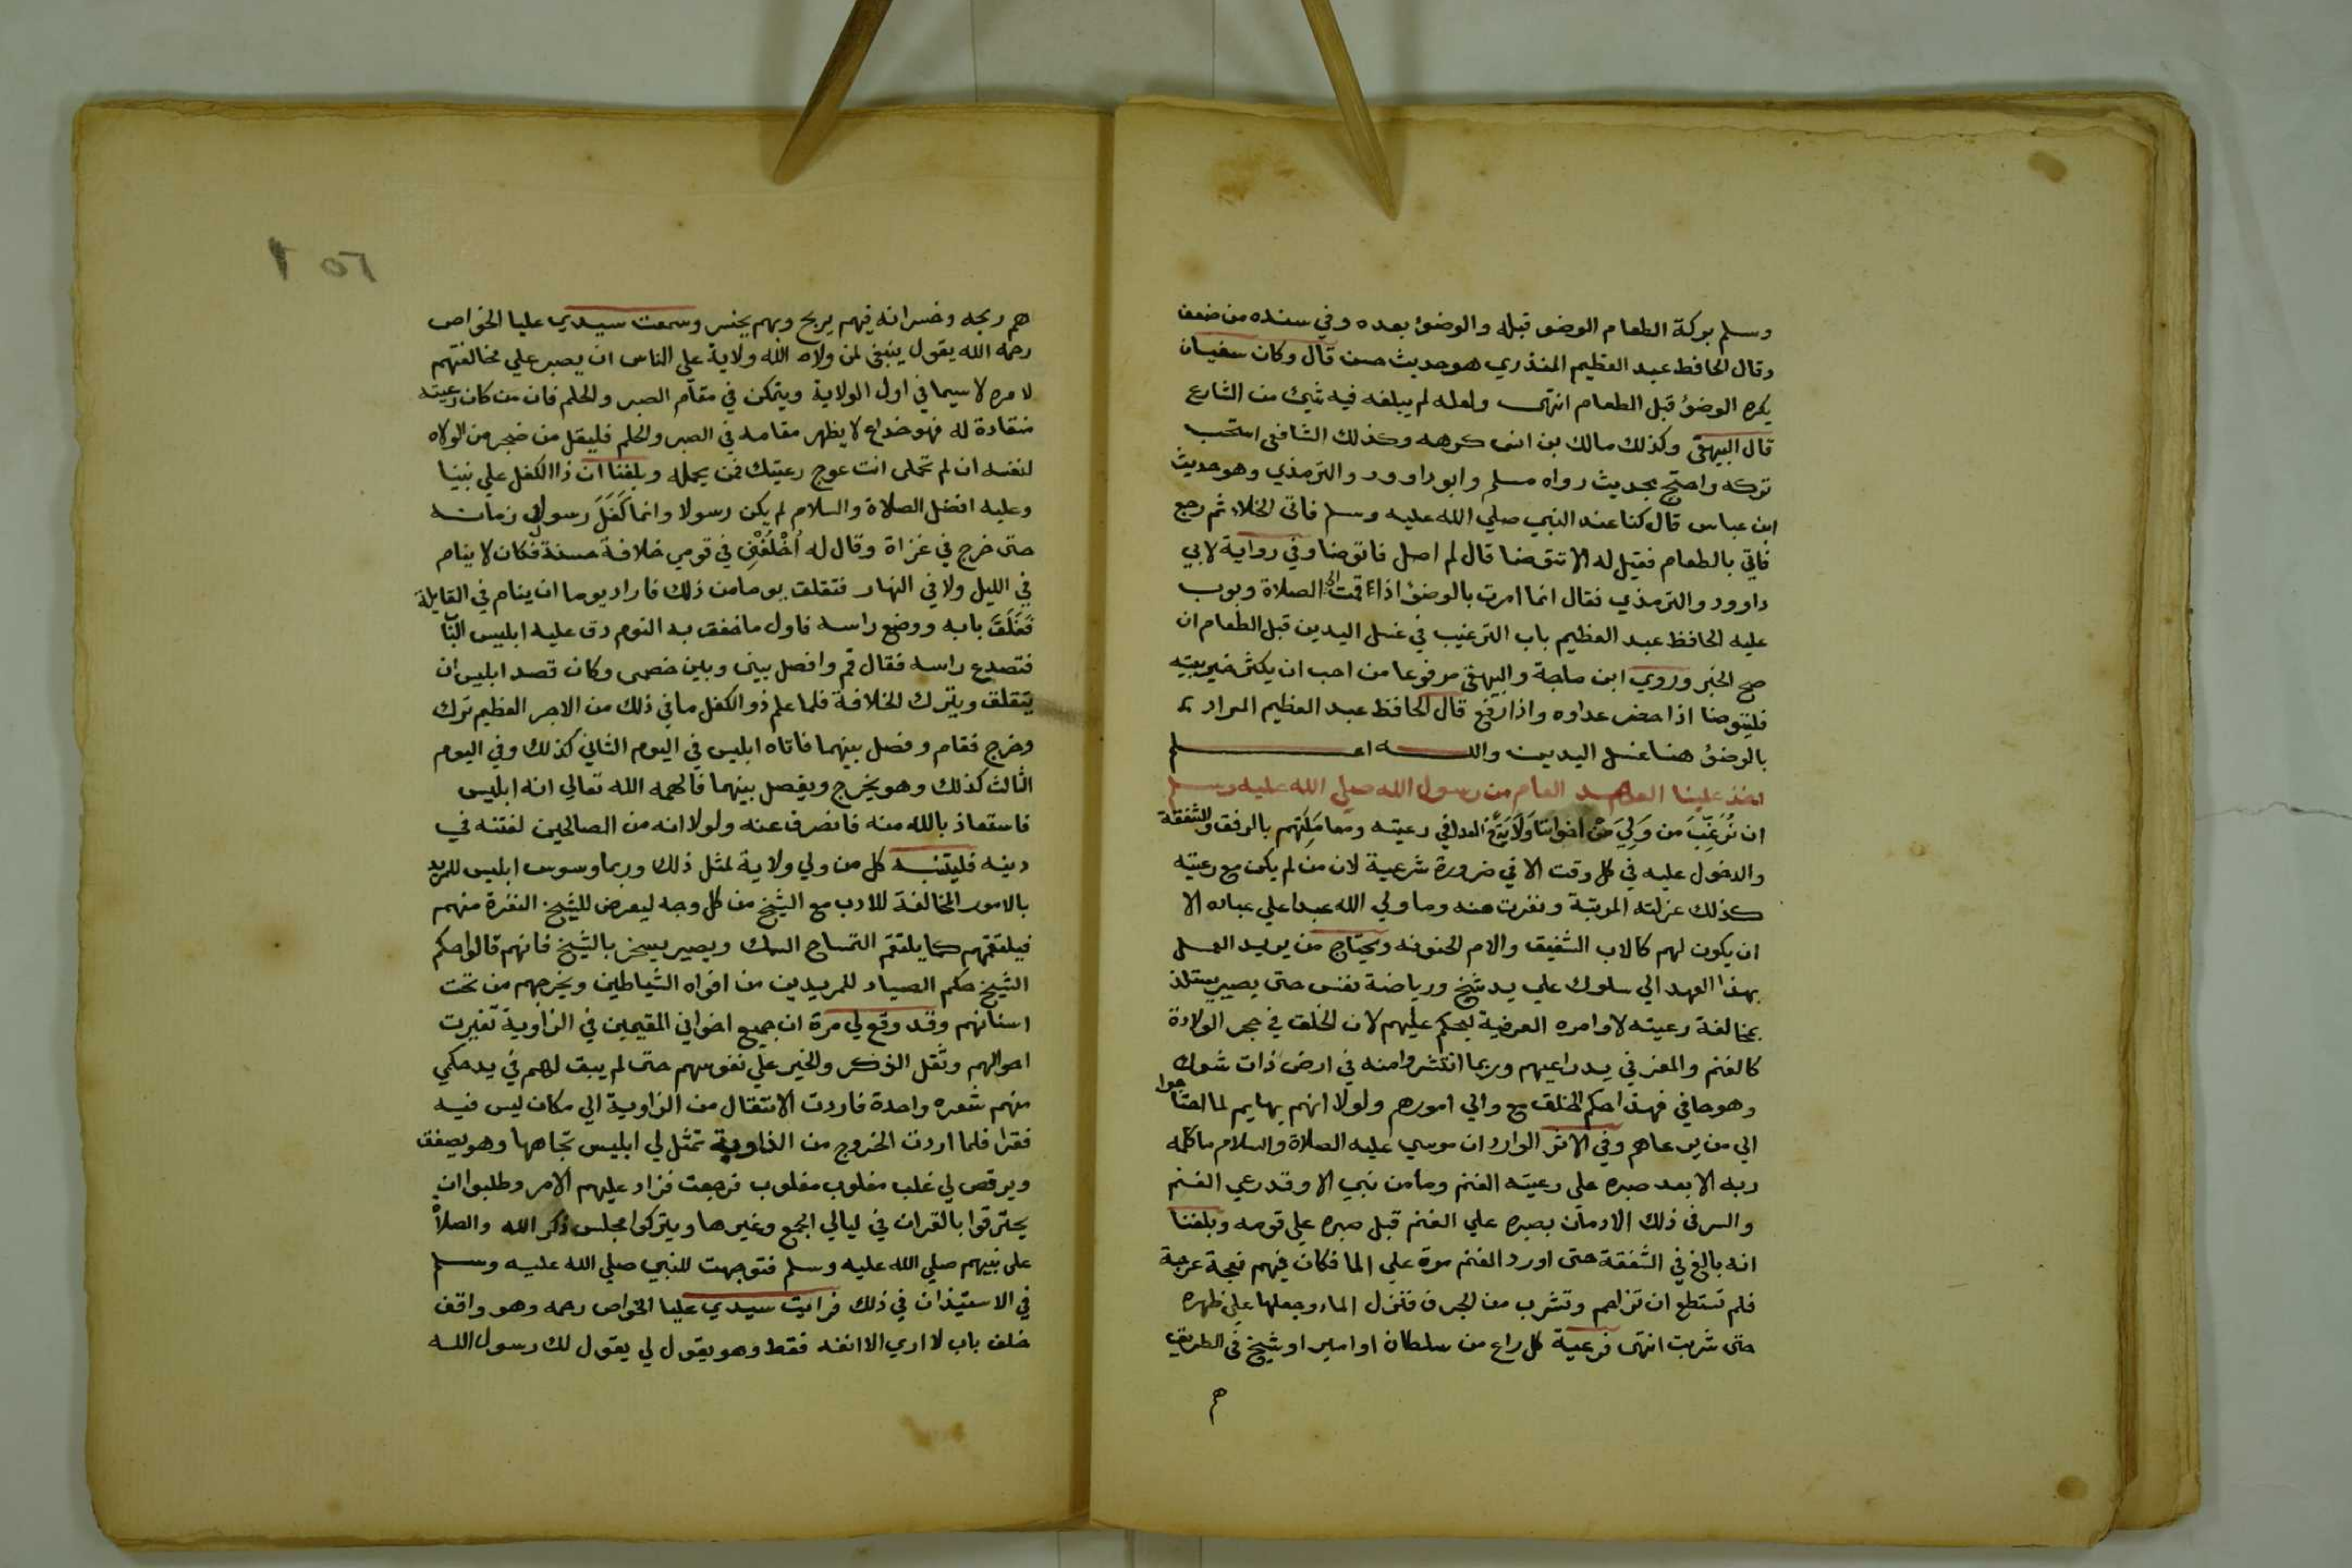 وسلم بركة الطعام الوضو قبله والوضؤ بعده وفي سنده من ضعف
وقال الحافظ عبد العظيم المنذري هو حديث حسن قال وكان سفيان
يكره الوضؤ قبل الطعام انتهى ولعله لم يبلغه فيه شيء من الشارع
قال البيهقي وكذلك مالك بن انس كرهه وكذلك الشافعي استحب
تركه واحتج بحديث رواه مسلم وابو داوود والترمذي وهو حديث
ابن عباس قال كنا عند النبي صلي الله عليه وسلم فاتى الخلاء ثم رجع
فاتي بالطعام فقيل له الا تتوضا قال لم اصل فاتوضا وفي رواية لابي
داوود والترمذي فقال انما امرت بالوضؤ اذا قمت الى الصلاة وبوب
عليه الحافظ عبد العظيم باب الترغيب في غسل اليدين قبل الطعام ان
صح الخبر وروي ابن ماجة والبيهقي مرفوعا من احب ان يكثر خير بيته
فليتوضا اذا حضر غداوه واذا رفع قال الحافظ عبد العظيم المراد
بالوضؤ هنا غسل اليدين والله اعلم
اخذ علينا العهد العام من رسول الله صلي الله عليه وسلم
ان نُرَغِّبَ من وَلِيَ مِنْ اخواننا وَلَايَةً العدل في رعيته ومعاملتهم بالرفق والشفقة
والدخول عليه في كل وقت الا في ضرورة شرعية لان من لم يكن مع رعيته
كذلك عزلته المرتبة ونفرت منه وما ولي الله عبدا علي عباده الا
ان يكون لهم كالاب الشفيق والام الحنونه ويحتاج من يريد العمل
بهذا العهد الي سلوك علي يد شيخ ورياضة نفس حتى يصير يستلذ
بمخالفة رعيته لاوامره العرضية ليحكم عليهم لان الخلق في حجر الولادة
كالغنم والمعز في يد راعيهم وربما انتشروا منه في ارض ذات شوك
وهو حافي فهذا حكم الخلق مع والي امورهم ولولا انهم بهايم لما احتاجوا
الي من يرعاهم وفي الاثر الوارد ان موسي عليه الصلاة والسلام ما كلمه
ربه الا بعد صبره علي رعيته الغنم وما من نبي الا وقد رعي الغنم
والسر في ذلك الادمان بصبره علي الغنم قبل صبره علي قومه وبلغنا
انه بالغ في الشفقة حتى اورد الغنم مرة علي الما فكان فيهم نعجة عرجة
فلم تستطع ان تزاحم وتشرب من الجرف فنزل الماء وجعلها علي ظهره
حتى شربت انتهى فرعية كل راع من سلطان او امير او شيخ في الطريق
هم
٥٦
هم ربحه وخسرانه فبهم يربح وبهم يخسر وسمعت سيدي عليا الخواص
رحمه الله يقول ينبغي لمن ولاه الله ولاية علي الناس ان يصبر علي مخالفتهم
لامره لا سيما في اول الولاية ويتمكن في مقام الصبر والحلم فان من كان رعيته
منقادة له فهو خداع لا يظهر مقامه في الصبر والحلم فليقل من ضجر من الولاه
لنفسه ان لم تحملى انت عوج رعيتك فمن يحمله وبلغنا ان ذا الكفل علي نبينا
وعليه افضل الصلاة والسلام لم يكن رسولا وانما كَفَلَ رسول في زمانه
حتى خرج في غزاة وقال له اُخْلُفْنِي في قومي خلافة حسنة فكان لا ينام
في الليل ولا في النهار فتقلق يوما من ذلك فاراد يوما ان ينام في القايلة
فَغَلَقَ بابه ووضع راسه فاول ما خفق به النوم دق عليه ابليس الباب
فتصدع راسه فقال قم وافصل بيني وبين خصمي وكان قصد ابليس ان
يتقلق ويترك الخلافة فلما علم ذو الكفل ما في ذلك من الاجر العظيم ترك
وخرج فقام وفصل بينهما فاتاه ابليس في اليوم الثاني كذلك وفي اليوم
الثالث كذلك وهو يخرج ويفصل بينهما فالهمه الله تعالي انه ابليس
فاستعاذ بالله منه فانصرف عنه ولولا انه من الصالحين لفتنه في
دينه فليتنبه كل من ولي ولاية لمثل ذلك وربما وسوس ابليس للمريد
بالامور المخالفة للادب مع الشيخ من كل وجه ليعرض للشيخ النفرة منهم
فيلتقمهم كما يلتقم التمساح السمك ويصير يسخر بالشيخ فانهم قالوا حكم
الشيخ حكم الصياد للمريدين من افواه الشياطين ويخرجهم من تحت
اسنانهم وقد وقع لي مرة ان جميع اخواني المقيمين في الزاوية تغيرت
احوالهم وثقل الذكر والخير علي نفوسهم حتى لم يبق لهم في يد حكمي
منهم شعره واحدة فاردت الانتقال من الزاوية الي مكان ليس فيه
فقرا فلما اردت الخروج من الذاوية تمثل لي ابليس تجاهها وهو يصفق
ويرقص لي غلب مغلوب مغلوب فرجعت فزاد عليهم الامر وطلبوا ان
يحترفوا بالقران في ليالي الجمع وغيرها ويتركوا مجلس ذكر الله والصلاة
على نبيهم صلي الله عليه وسلم فتوجهت للنبي صلي الله عليه وسلم
في الاستيذان في ذلك فرايت سيدي عليا الخواص رحمه وهو واقف
خلف باب لا اري الا انفه فقط وهو يقول لي يقول لك رسول الله